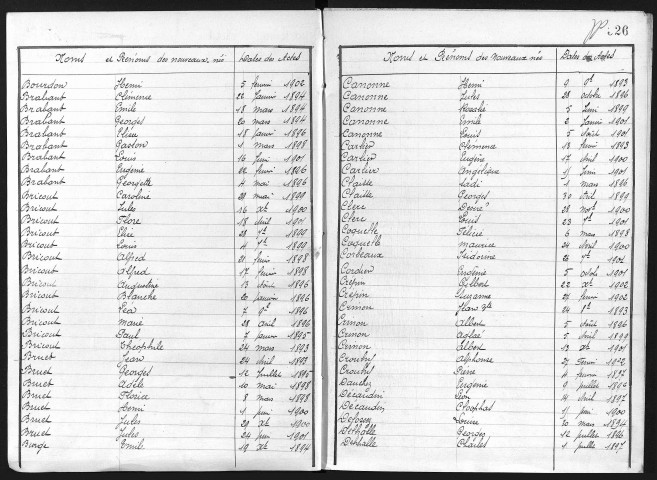 26
Noms et Prénoms des nouveaux nés Dates des Actes
Bourdon Henri 5 février 1902
Brabant Clémence 22 Janvr 1894
Brabant Emile 18 mars 1894
Brabant Georges 20 mars 1894
Brabant Elie 18 Janvr 1896
Brabant Gaston 1 mars 1898
Brabant Louis 16 Juin 1901
Brabant Eugénie 22 févr 1896
Brabant Georgette 4 mai 1896
Bricout Caroline 29 mai 1899
Bricout Jules 16 Xbre 1900
Bricout Flore 18 Avril 1901
Bricout Elie 28 1899
Bricout Louis 4 1899
Bricout Alfred 21 Juin 1898
Bricout Alfred 17 1898
Bricout Augustine 13 Août 1895
Bricout Blanche 20 Janvier 1896
Bricout Léa 7 9bre 1896
Bricout Marie 28 Avril 1896
Bricout Paul 7 Janvier 1895
Bricout Théophile 24 mars 1893
Bruet Jean 24 Avril 1897
Bruet Georges 12 Juillet 1895
Bruet Adèle 10 mai 1898
Bruet Floria 8 mars 1898
Bruet Henri 1 Juin 1900
Bruet Jules 29 Xbre 1900
Bruet Jules 24 Juin 1901
Burge Emile 19 Xbre 1894
Noms et Prénoms des Nouveaux nés Dates des Actes
Canonne Henri 9 1893
Canonne Jules 28 octobre 1896
Canonne Rosalie 5 Juin 1899
Canonne Emile 2 Janvier 1901
Canonne Louis 5 Août 1901
Carlier Clémence 18 févr 1893
Carlier Eugène 17 Avril 1900
Carlier Angélique 15 Juin 1901
Claisse Sadi 1 mars 1896
Claisse Georges 30 Avril 1899
Clerc Désiré 28 1900
Clerc Louis 23 1901
Coquelle Félicie 6 mars 1898
Coquelle Maurice 24 Avril 1900
Corbeaux Isidorine 26 1901
Cordier Eugénie 5 octob 1901
Crépin Gilbert 22 Xbre 1902
Crépin Suzanne 27 févr 1902
Crinon Jean Bte 24 1893
Crinon Albert 5 Août 1896
Crinon Aglaé 5 Avril 1899
Crinon Albert 13 Xbre 1901
Croutry Alphonse 27 février 1902
Croutry Pierre 4 février 1897
Dauchy Eugène 9 Juillet 1895
Décaudin Léon 4 Avril 1897
Décaudin Cléophas 11 Juin 1900
Louise 30 mars 1894
Delhalle Georges 12 Juillet 1896
Delhalle Charles 1 Juillet 1897